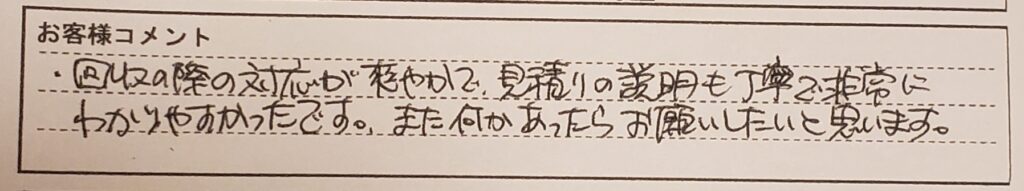 お客様コメント
・回収の際の対応が穏やかで、見積りの説明も丁寧で非常に
わかりやすかったです。また何かあったらお願いしたいと思います。